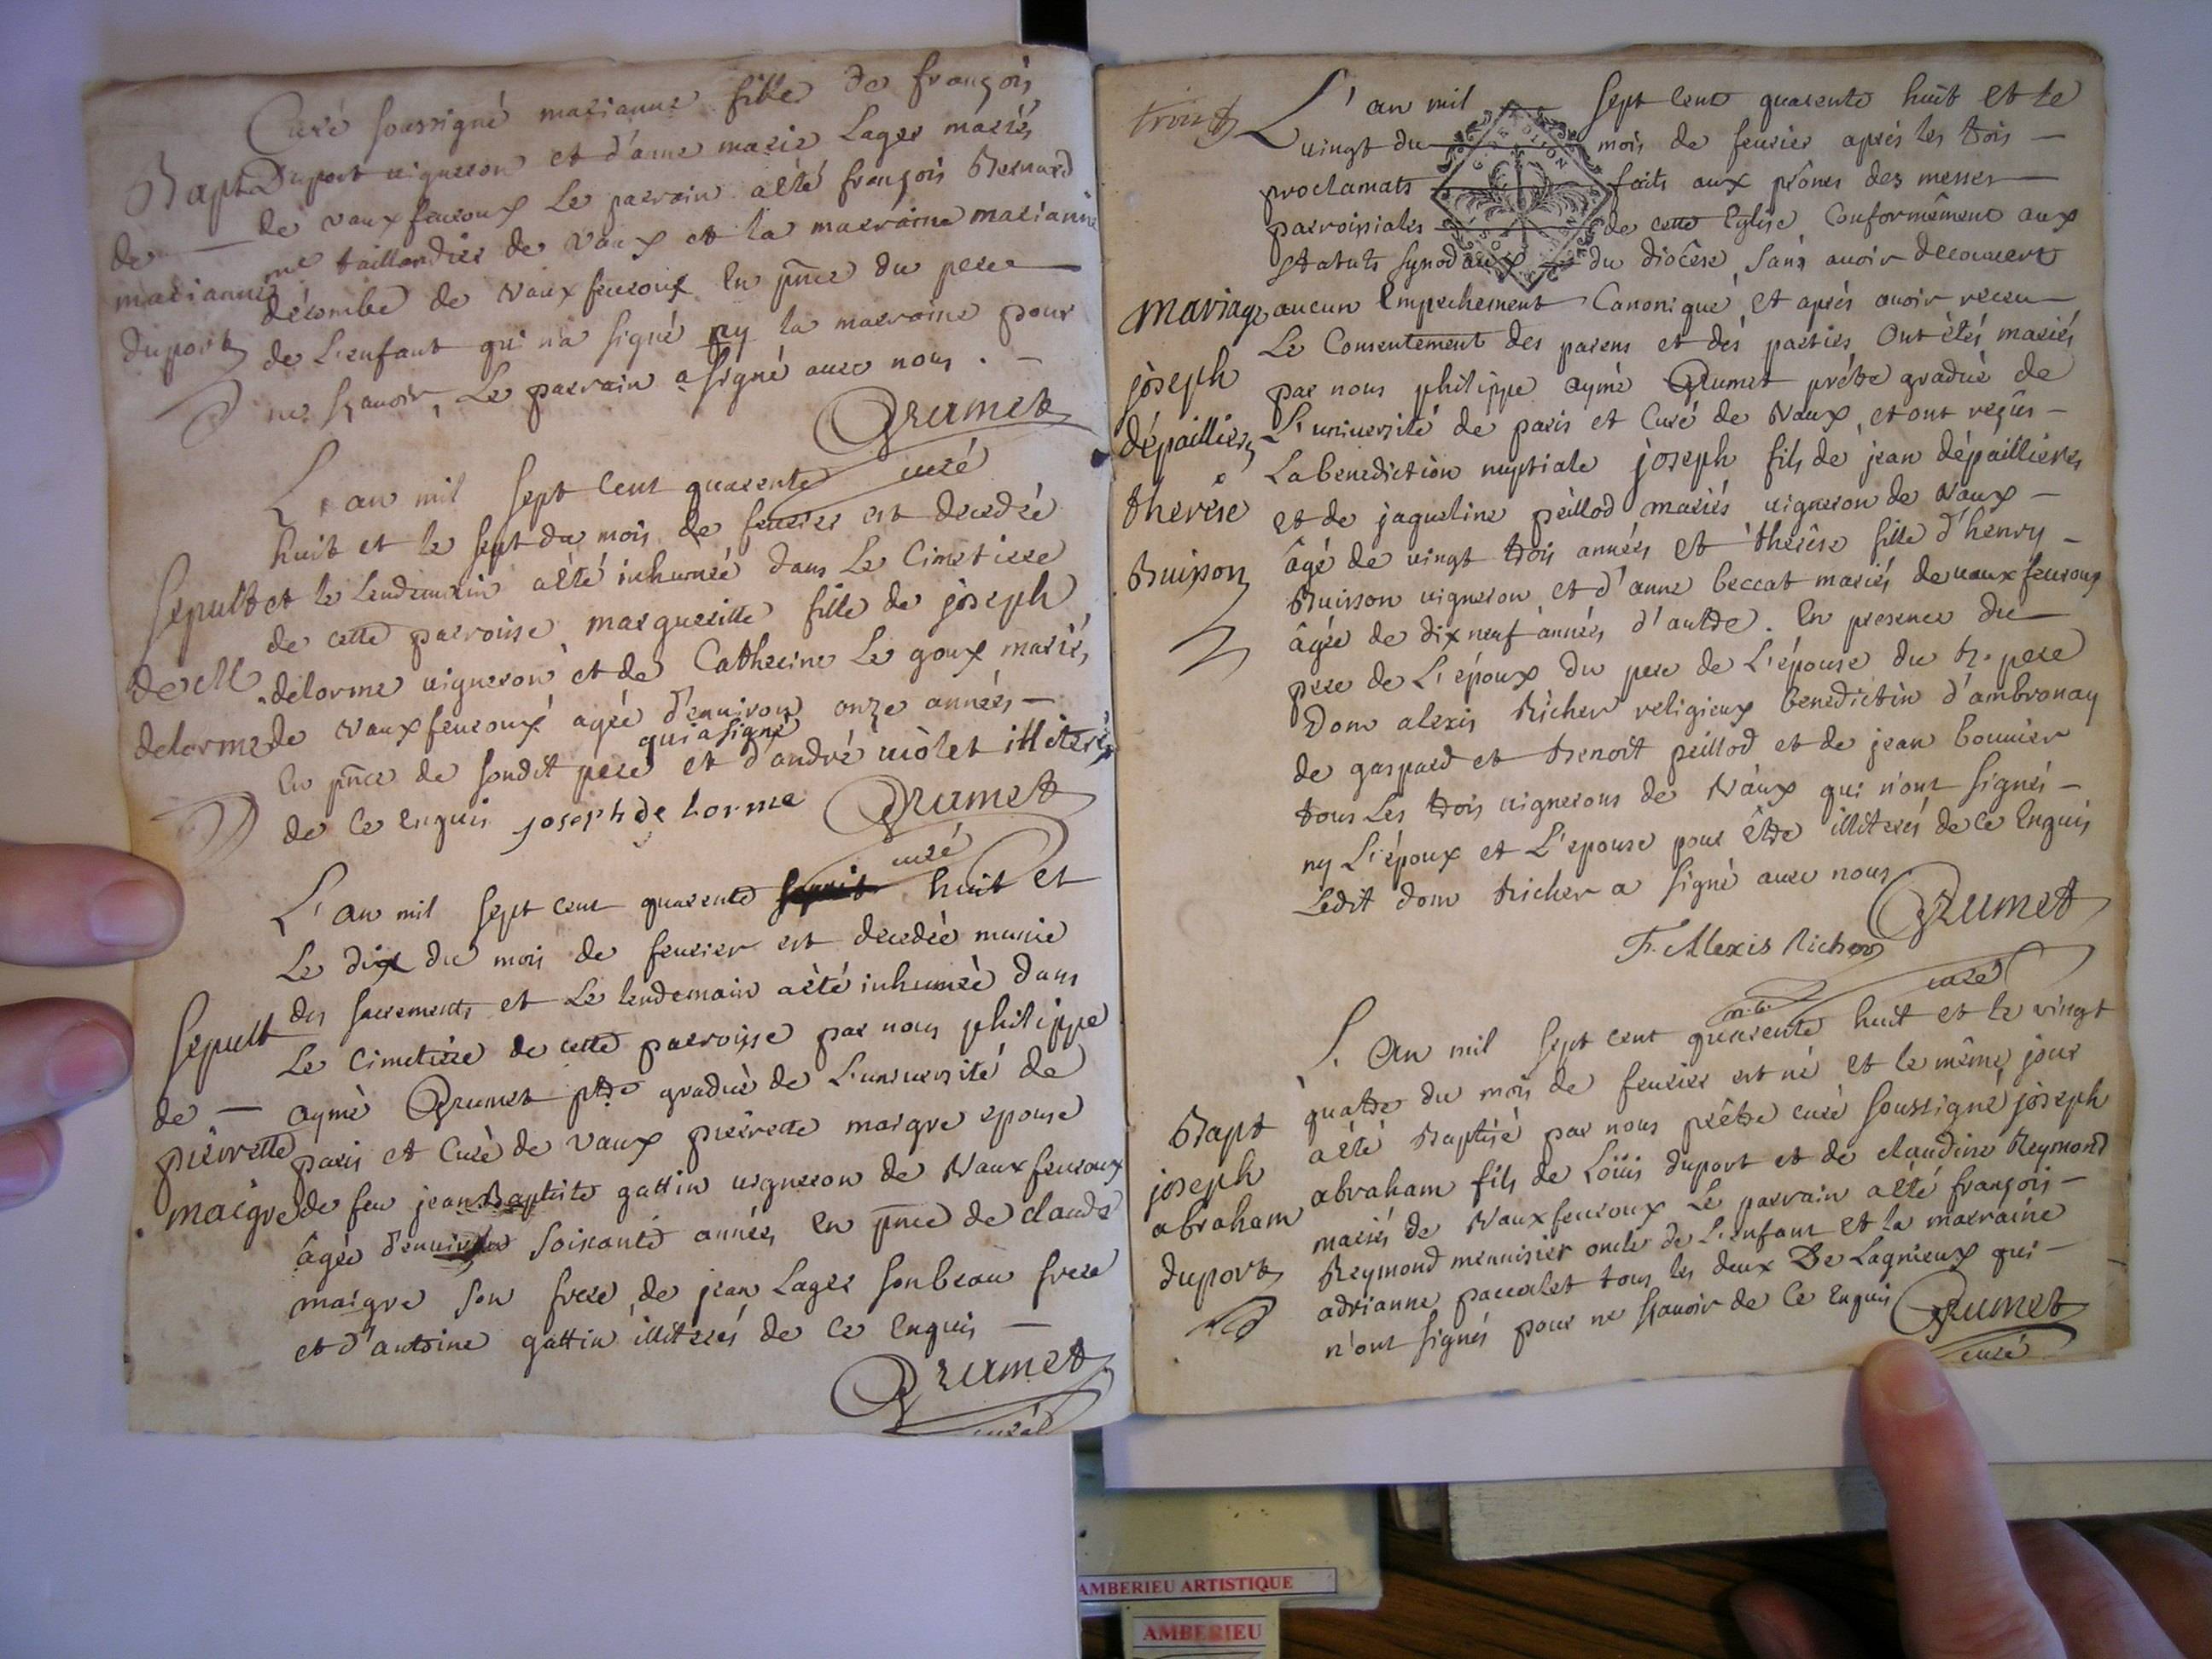 Curé soussigné marianne fille de françois
Bapt Duport uigneron et d'anne marie Lager mariés
de — de vauxfeuroux Le parrain aèté françois Bernard
me taillandier de vaux et la marraine marianne
marianne décombe de vauxfeuroux En pñce du pere —
duport de L'enfant qui n'a signé ny la marraine pour
ne sçauoir, Le parrain a signé auec nous . —
Grumet
curé
L'an mil sept cent quarente
huit et le sept du mois de feurier est decedeé
Sepult et le Lendemain aèté inhumeé dans Le Cimetiere
de cette parroisse margueritte fille de joseph
de M. delorme uigneron et de Catherine Le goux mariés,
delorme de vauxfeuroux agée d'enuiron onze années —
qui a signé
En pñce de sondit pere et d'andré uiolet illiteré
de ce Enquis joseph de Lorme Grumet
curé
L'an mil sept cent quarente huit et
Le dix du mois de feurier est decedeé munie
des sacrements et Le lendemain aèté inhumeé dans
Sepult Le Cimetiére de cette parroisse par nous philippe
de — aymè Grumet ptre graduè de L'uniuersité de
pierrette paris et Curè de vaux pierrette maigre epouse
maigre de feu jean Baptiste gattin uigneron de vauxfeuroux
âgée d'enuiron soixante années En pñce de claude
maigre son frere, de jean Lager son beau frere
et d'antoine gattin illiterés de ce Enquis —
Grumet
curé
trois
L'an mil sept cent quarente huit et le
uingt du mois de feurier aprés les trois —
proclamats faits aux prônes des messes —
parroissiales de cette Eglise Conformément aux
statuts synodaux du diocèse, sans auoir decouuert
mariage aucun Empechement Canonique, et aprés auoir receu —
Le Consentement des parens et des parties Ont étés mariés
joseph par nous philippe aymè Grumet prétre graduè de
dépailliers L'uniuersité de paris et Curé de vaux, et ont reçûs —
La benediction nuptiale joseph fils de jean dépailliers
therèse et de jaqueline peillod mariés uigneron de vaux —
âgé de uingt trois années et thérèse fille d'henry —
Buisson Buisson uigneron et d'anne beccat mariés de uauxfeuroux
âgée de dixneuf années d'autre. En presence du —
pere de L'époux du pere de L'épouse du R. pere
Dom alexis Richer religieux benedictin d'ambronay
de gaspard et Benoit peillod et de jean bouuier
tous Les trois uignerons de vaux qui n'ont signés —
ny L'époux et L'epouse pour être illiterés de ce Enquis
Ledit dom Richer a signé auec nous
Grumet
F. Alexis Richer
curé
L'an mil sept cent quarente huit et le vingt
quatre du mois de feurier est né et le même jour
Bapt aèté Baptisé par nous prêtre curé soussigné joseph
joseph abraham fils de Loüis duport et de claudine Reymond
abraham mariés de vauxfeuroux Le parrain aèté françois —
Reymond mennisier oncle de L'enfant et la marraine
duport adrianne paccalet tous les deux De Lagnieux qui —
n'ont signés pour ne sçauoir de ce Enquis Grumet
curé
AMBERIEU ARTISTIQUE
AMBERIEU